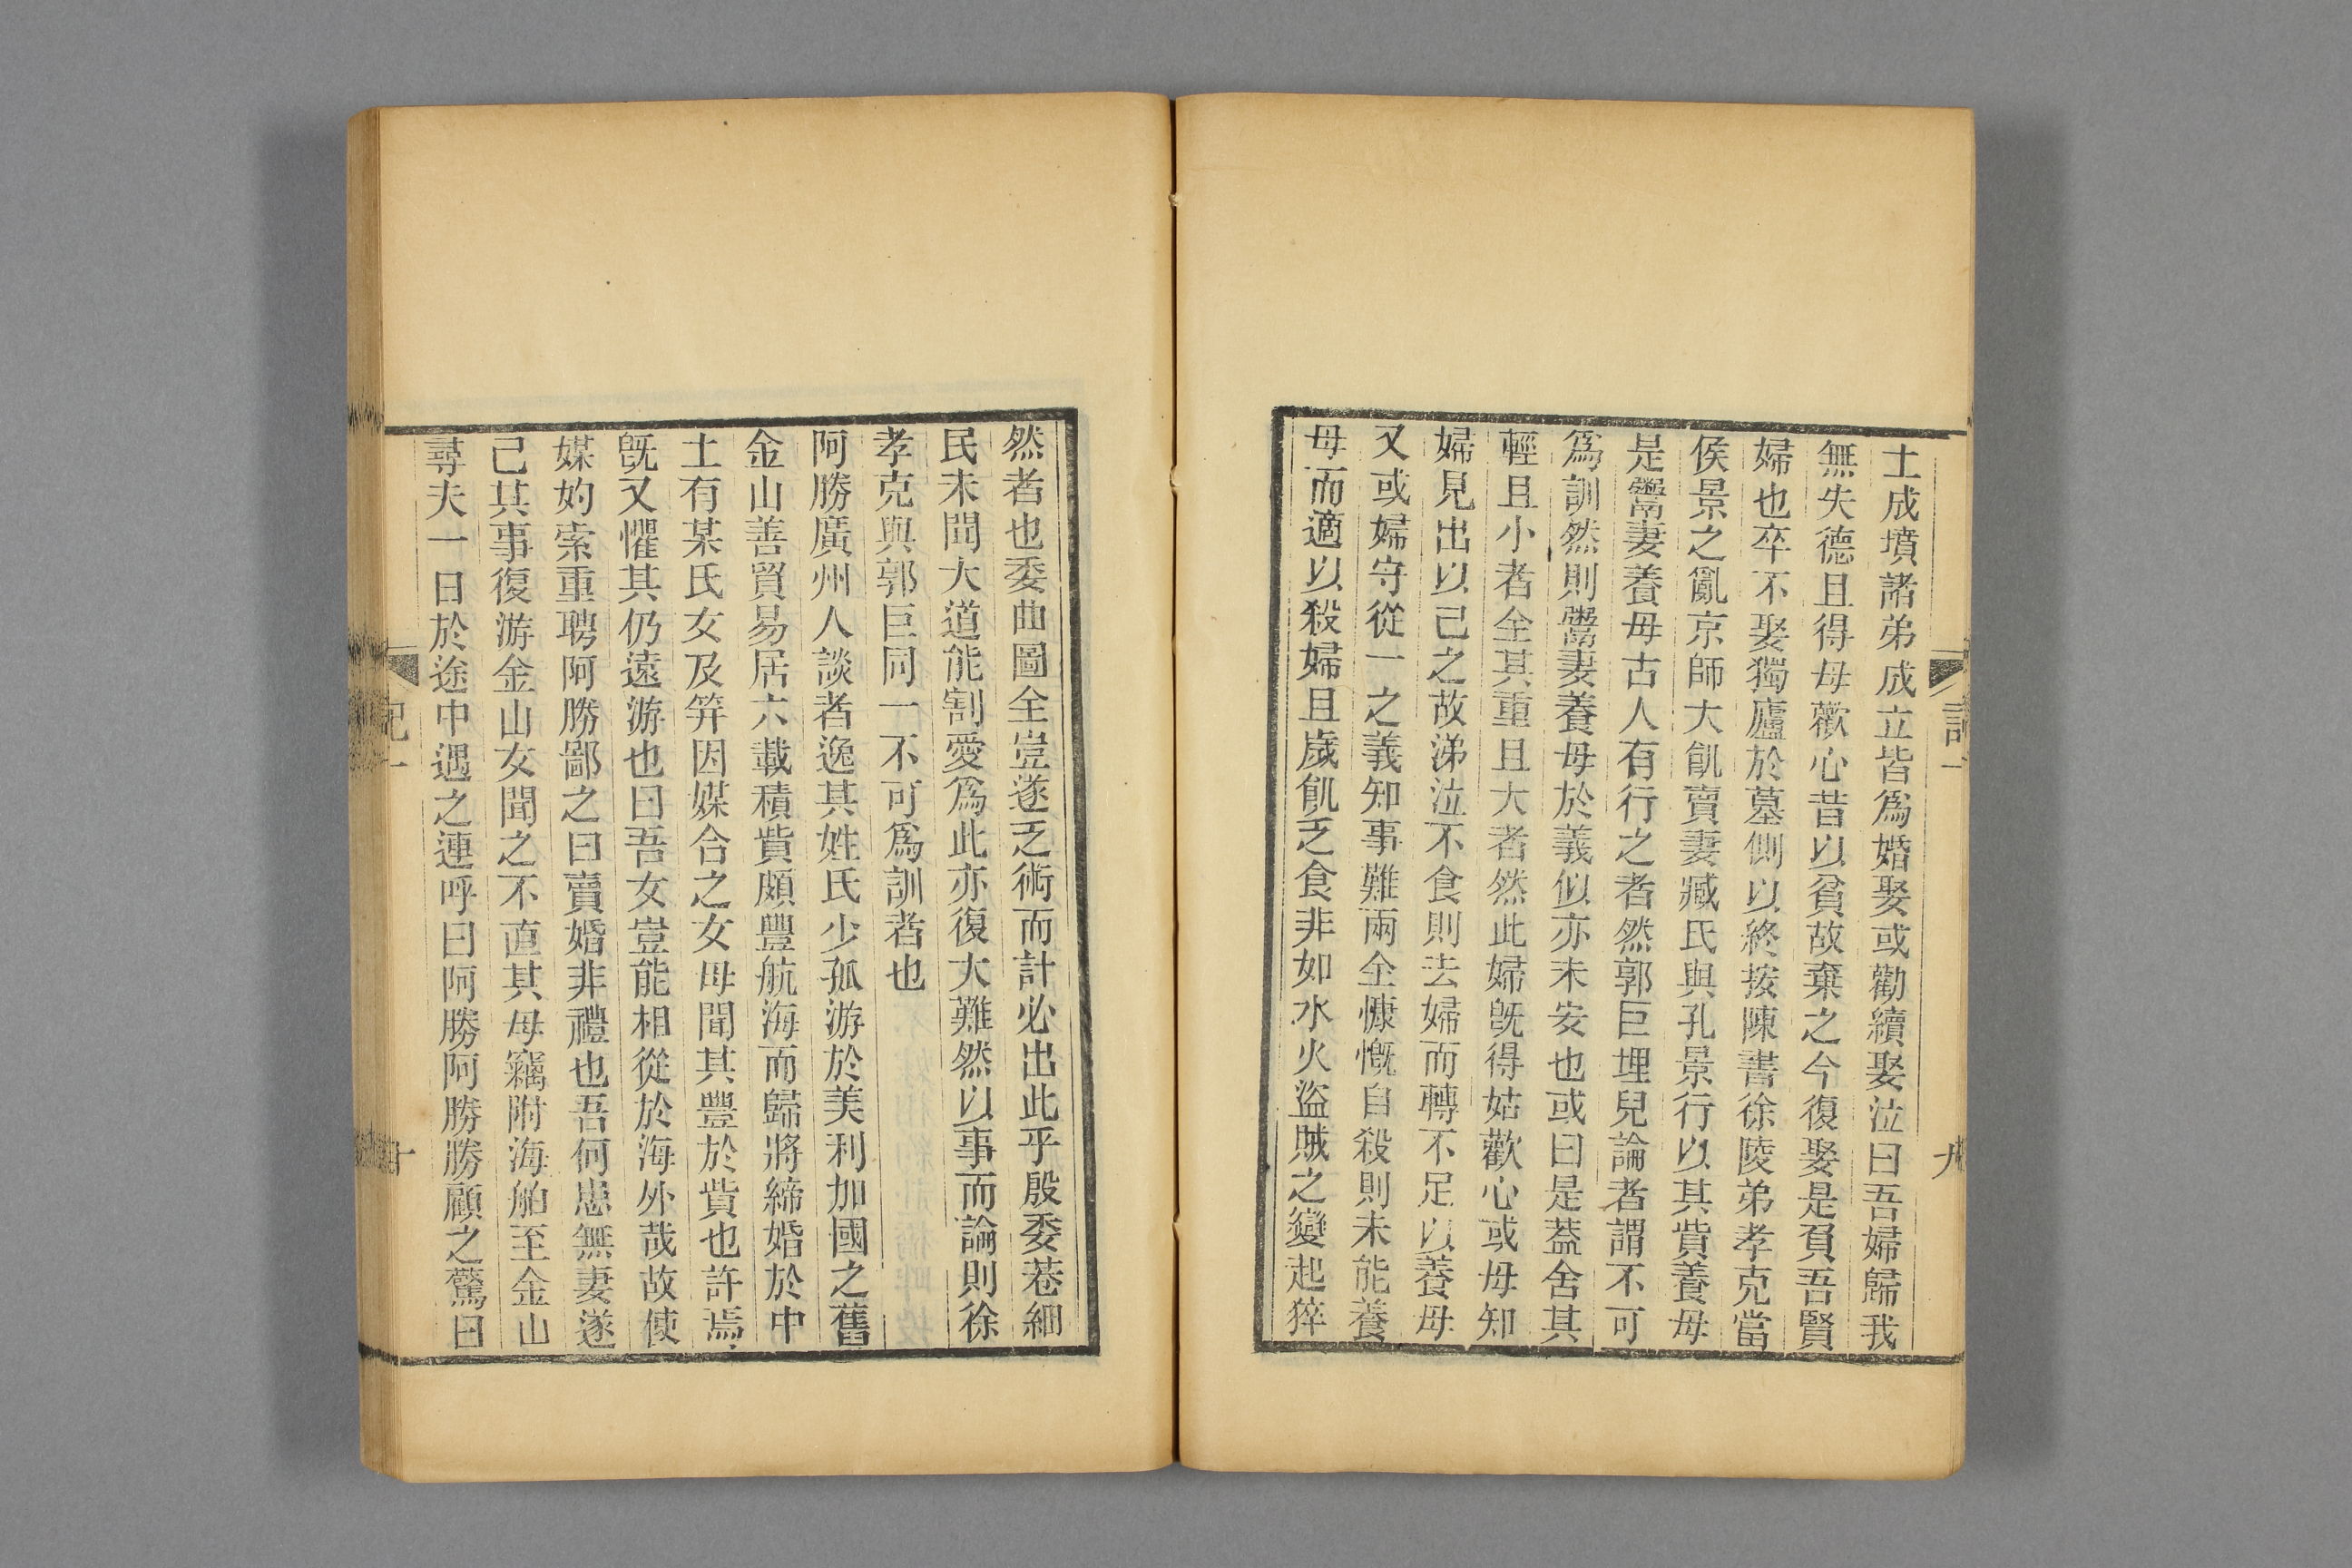 土成墳諸弟成立皆爲婚娶或勸續娶泣曰吾婦歸我
無失德且得母歡心昔以貧故棄之今復娶是負吾賢
婦也卒不娶獨廬於墓側以終按陳書徐陵弟孝克當
侯景之亂京師大飢賣妻臧氏與孔景行以其貲養母
是鬻妻養母古人有行之者然郭巨埋兒論者謂不可
爲訓然則鬻妻養母於義似亦未安也或曰是蓋舍其
輕且小者全其重且大者然此婦既得姑歡心或母知
婦見出以己之故涕泣不食則去婦而轉不足以養母
又或婦守從一之義知事難兩全慷慨自殺則未能養
母而適以殺婦且歲飢乏食非如水火盜賊之變起猝
然者也委曲圖全豈遂乏術而計必出此乎殷委巷細
民未聞大道能割愛爲此亦復大難然以事而論則徐
孝克與郭巨同一不可爲訓者也
阿勝廣州人談者逸其姓氏少孤游於美利加國之舊
金山善貿易居六載積貲頗豐航海而歸將締婚於中
土有某氏女及笄因媒合之女母聞其豐於貲也許焉
既又懼其仍遠游也曰吾女豈能相從於海外哉故使
媒妁索重聘阿勝鄙之曰賣婚非禮也吾何患無妻遂
己其事復游金山女聞之不直其母竊附海舶至金山
尋夫一日於途中遇之連呼曰阿勝阿勝勝顧之驚曰
記一
十
九